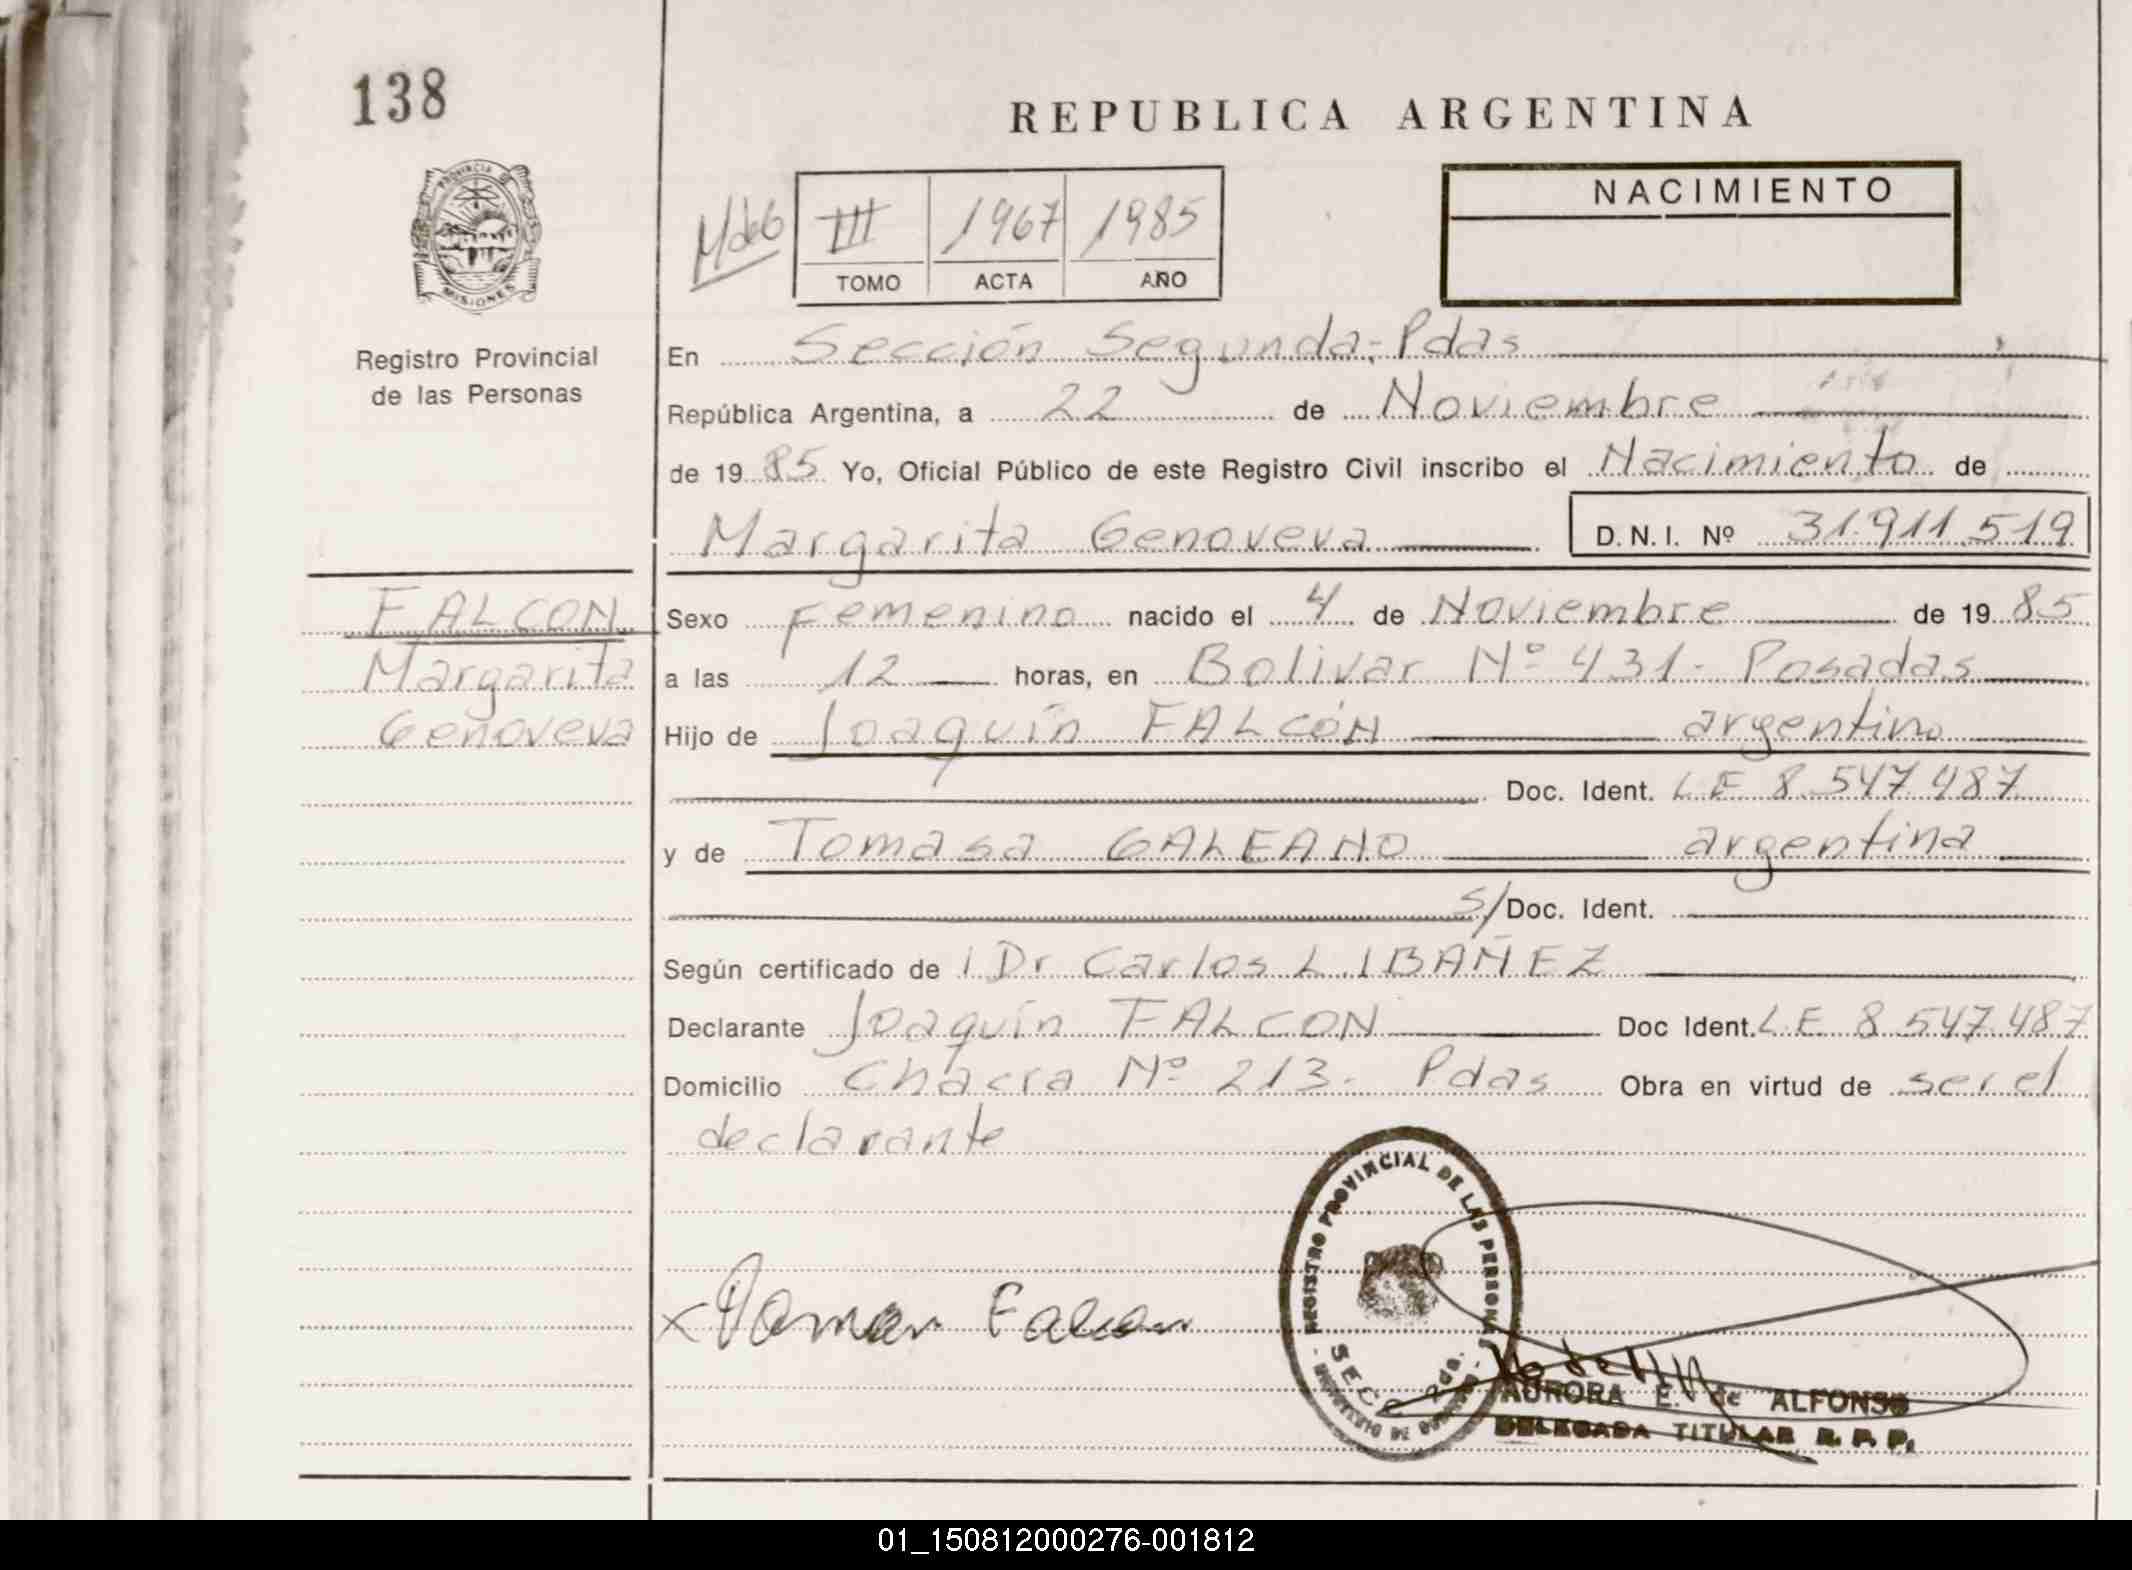 138
REPUBLICA ARGENTINA
PROVINCIA DE
MISIONES
NACIMIENTO
III 1967 1985
TOMO ACTA AÑO
Registro Provincial
de las Personas
En Sección Segunda; Pdas
República Argentina, a 22 de Noviembre
de 1985 Yo, Oficial Público de este Registro Civil inscribo el Nacimiento de
Margarita Genoveva D.N.I. Nº 31.911.519
FALCON
Margarita
Genoveva
Sexo Femenino nacido el 4 de Noviembre de 1985
a las 12 horas, en Bolivar Nº 431- Posadas
Hijo de Joaquín FALCÓN argentino
Doc. Ident. LE 8.547.487
y de Tomasa GALEANO argentina
S/Doc. Ident.
Según certificado de l Dr Carlos L. IBAÑEZ
Declarante Joaquín FALCON Doc Ident. LE 8 547.487
Domicilio Chacra Nº 213- Pdas Obra en virtud de ser el
declarante
REGISTRO PROVINCIAL DE LAS PERSONAS
SECC. 2da.
x Falcon
AURORA E. de ALFONSO
DELEGADA TITULAR R. P. P.
01_150812000276-001812